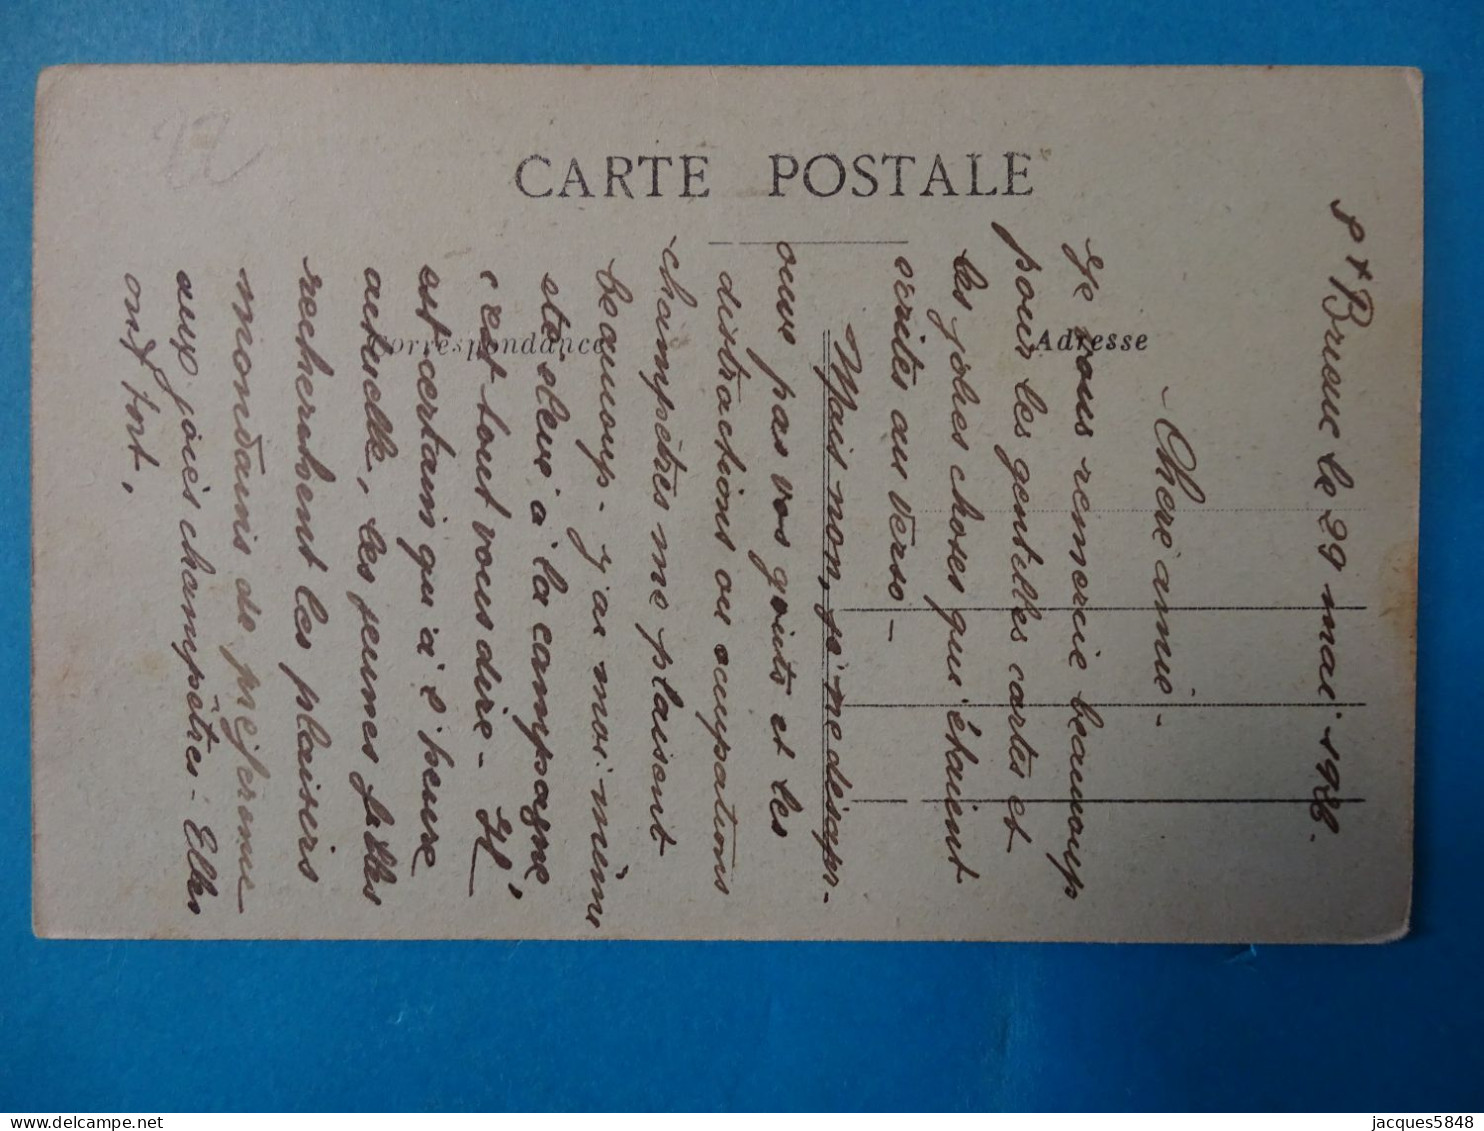 CARTE POSTALE
Correspondance
Adresse
St Brieuc le 29 mai 1928.
Chère amie -
Je vous remercie beaucoup
pour les gentilles cartes et
les jolies choses qui étaient
écrites au verso -
Mais non, je ne désap-
ouve pas vos goûts et les
distractions ou occupations
champêtres me plaisent
beaucoup - j'ai moi-même
été élevé à la campagne
c'est tout vous dire - Il
est certain qu'à l'heure
actuelle, les jeunes filles
recherchent les plaisirs
mondains de préférence
aux joies champêtres - Elles
ont tort.
jacques5848